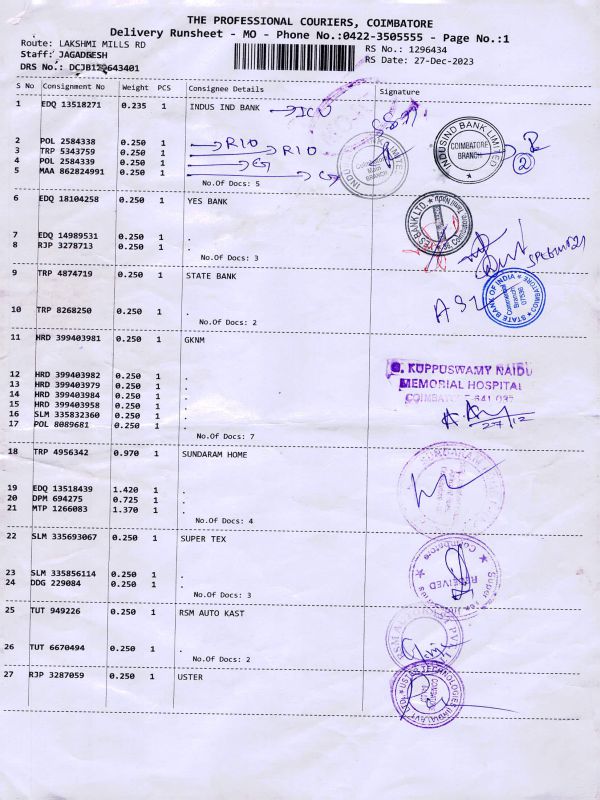 THE PROFESSIONAL COURIERS, COIMBATORE
Delivery Runsheet - MO - Phone No.:0422-3505555 - Page No.:1
Route: LAKSHMI MILLS RD
RS No.: 1296434
Staff: JAGADEESH
RS Date: 27-Dec-2023
DRS No.: DCJB129643401
S No Consignment No Weight PCS Consignee Details Signature
1 EDQ 13518271 0.235 1 INDUS IND BANK → ICU
2 POL 2584338 0.250 1 → R10
3 TRP 5343759 0.250 1 → R10
4 POL 2584339 0.250 1 → G
5 MAA 862824991 0.250 1 → G
INDUSIND BANK LIMITED
COIMBATORE
MAIN
BRANCH
INDUSIND BANK LIMITED
COIMBATORE
BRANCH
2
No.Of Docs: 5
6 EDQ 18104258 0.250 1 YES BANK
YES BANK LTD.
7 EDQ 14989531 0.250 1 .
8 RJP 3278713 0.250 1 .
No.Of Docs: 3
9 TRP 4874719 0.250 1 STATE BANK
STATE BANK OF INDIA
COIMBATORE
07536
Branch
10 TRP 8268250 0.250 1 .
No.Of Docs: 2
11 HRD 399403981 0.250 1 GKNM
G. KUPPUSWAMY NAIDU
MEMORIAL HOSPITAL
12 HRD 399403982 0.250 1 .
13 HRD 399403979 0.250 1 .
14 HRD 399403984 0.250 1 .
15 HRD 399403958 0.250 1 .
16 SLM 335832360 0.250 1 .
17 POL 8089681 0.250 1 .
27/12
No.Of Docs: 7
18 TRP 4956342 0.970 1 SUNDARAM HOME
19 EDQ 13518439 1.420 1 .
20 DPM 694275 0.725 1 .
21 MTP 1266083 1.370 1 .
No.Of Docs: 4
22 SLM 335693067 0.250 1 SUPER TEX
Coimbatore
RECEIVED
23 SLM 335856114 0.250 1 .
24 DDG 229084 0.250 1 .
No.Of Docs: 3
25 TUT 949226 0.250 1 RSM AUTO KAST
26 TUT 6670494 0.250 1 .
No.Of Docs: 2
27 RJP 3287059 0.250 1 USTER
USTER TECHNOLOGIES (INDIA) PVT LTD